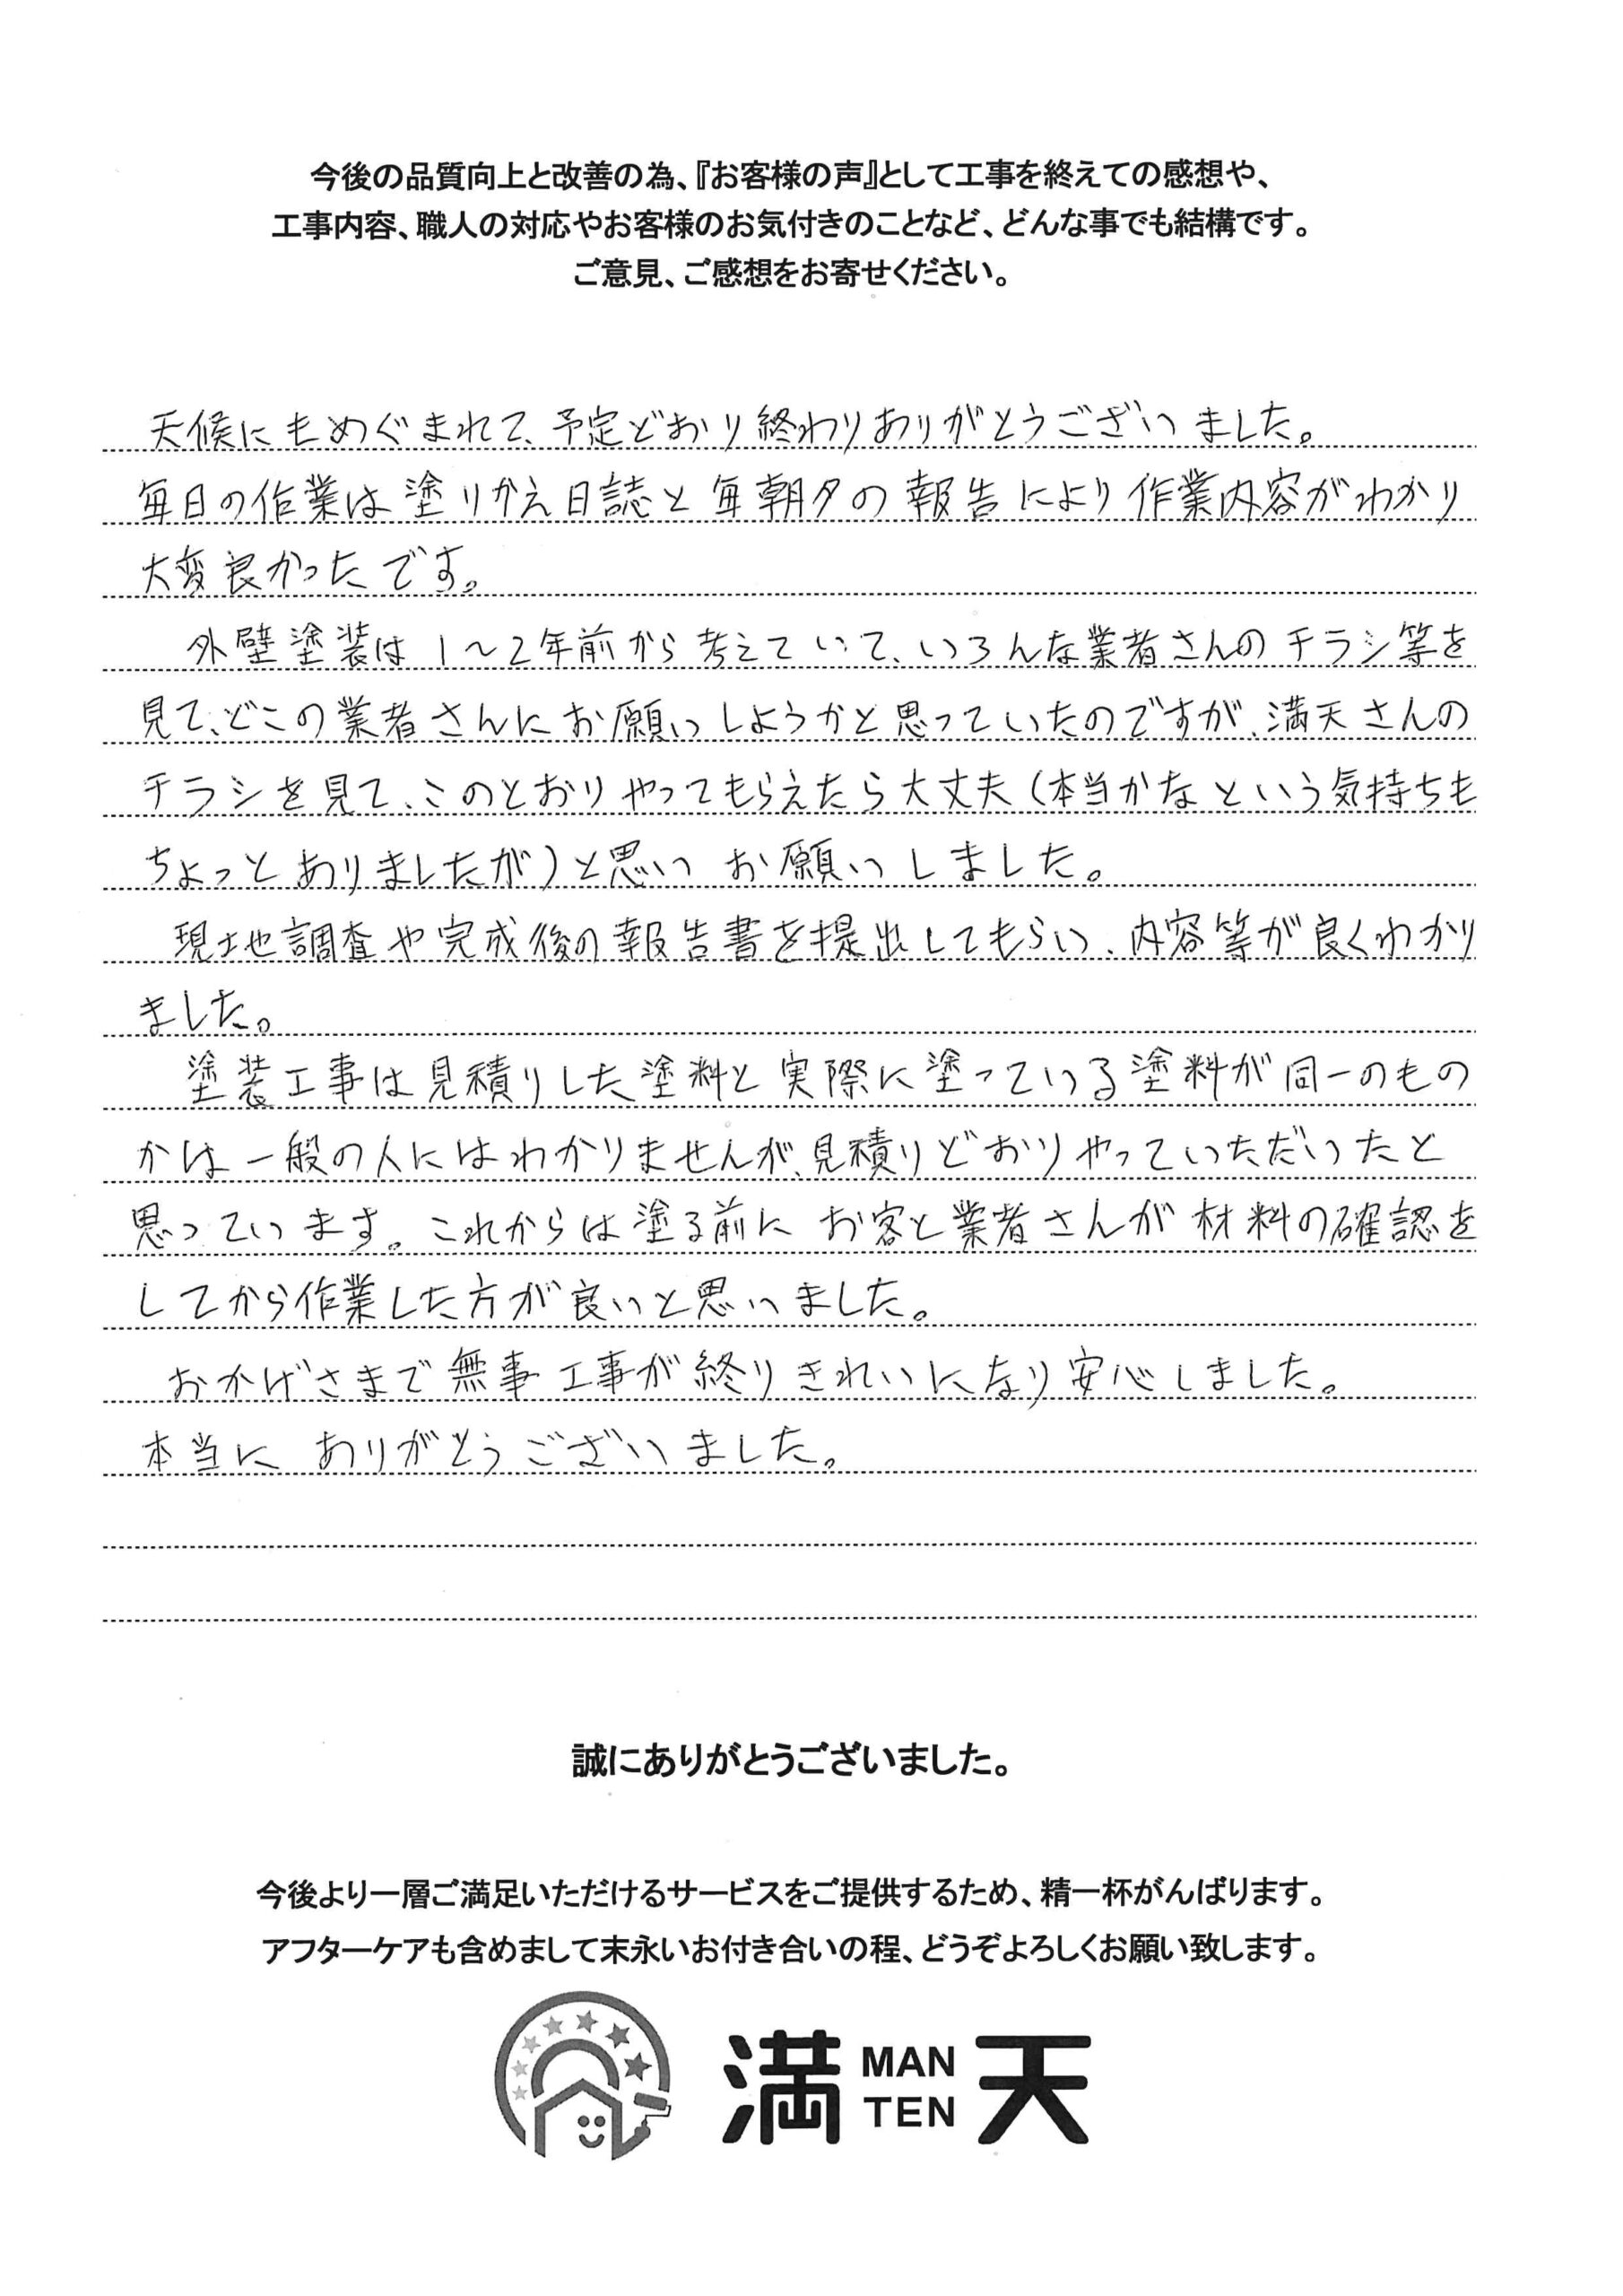 今後の品質向上と改善の為、『お客様の声』として工事を終えての感想や、
工事内容、職人の対応やお客様のお気付きのことなど、どんな事でも結構です。
ご意見、ご感想をお寄せください。
天候にもめぐまれて、予定どおり終わりありがとうございました。
毎日の作業は塗りかえ日誌と毎朝夕の報告により作業内容がわかり
大変良かったです。
外壁塗装は1〜2年前から考えていて、いろんな業者さんのチラシ等を
見て、どこの業者さんにお願いしようかと思っていたのですが、満天さんの
チラシを見て、このとおりやってもらえたら大丈夫(本当かなという気持ちも
ちょっとありましたが)と思いお願いしました。
現地調査や完成後の報告書を提出してもらい、内容等が良くわかり
ました。
塗装工事は見積りした塗料と実際に塗っている塗料が同一のもの
かは一般の人にはわかりませんが、見積りどおりやっていただいたと
思っています。これからは塗る前にお客と業者さんが材料の確認を
してから作業した方が良いと思いました。
おかげさまで無事工事が終りきれいになり安心しました。
本当にありがとうございました。
誠にありがとうございました。
今後より一層ご満足いただけるサービスをご提供するため、精一杯がんばります。
アフターケアも含めまして末永いお付き合いの程、どうぞよろしくお願い致します。
満 MAN TEN 天